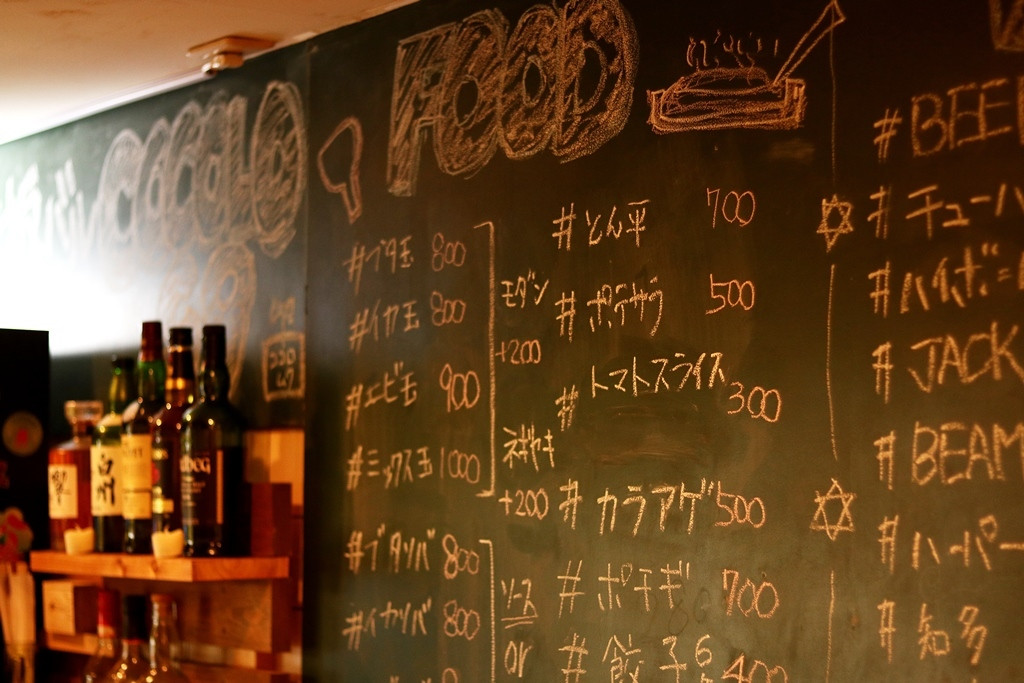 COCOLO
FOOD
#ブタ玉 800
#イカ玉 800
#エビ玉 900
#ミックス玉 1000
モダン
+200
ネギヤキ
+200
#ブタソバ 800
#イカソバ 800
ソース
or
#とん平 700
#ポテサラ 500
#トマトスライス 300
#カラアゲ 500
#ポテギ 700
#餃子 6 400
#BEE
#チューハ
#ハイボ
#JACK
#BEAM
#ハーパー
#知多
白州